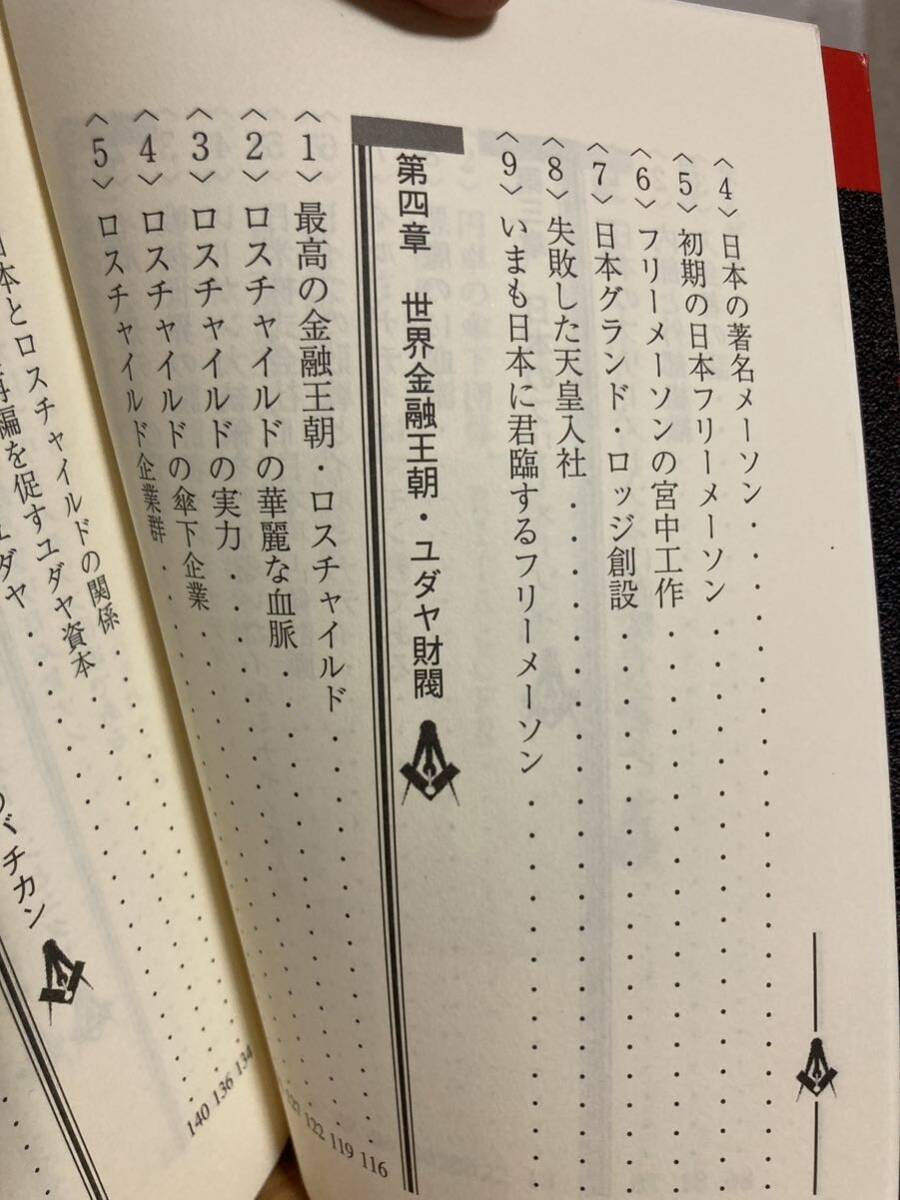 〈4〉日本の著名メーソン
〈5〉初期の日本フリーメーソン
〈6〉フリーメーソンの宮中工作
〈7〉日本グランド・ロッジ創設
〈8〉失敗した天皇入社
〈9〉いまも日本に君臨するフリーメーソン
第四章 世界金融王朝・ユダヤ財閥
〈1〉最高の金融王朝・ロスチャイルド 116
〈2〉ロスチャイルドの華麗な血脈 119
〈3〉ロスチャイルドの実力 122
〈4〉ロスチャイルドの傘下企業 127
〈5〉ロスチャイルド企業群
本とロスチャイルドの関係 134
編を促すユダヤ資本 136
ユダヤ 140
バチカン